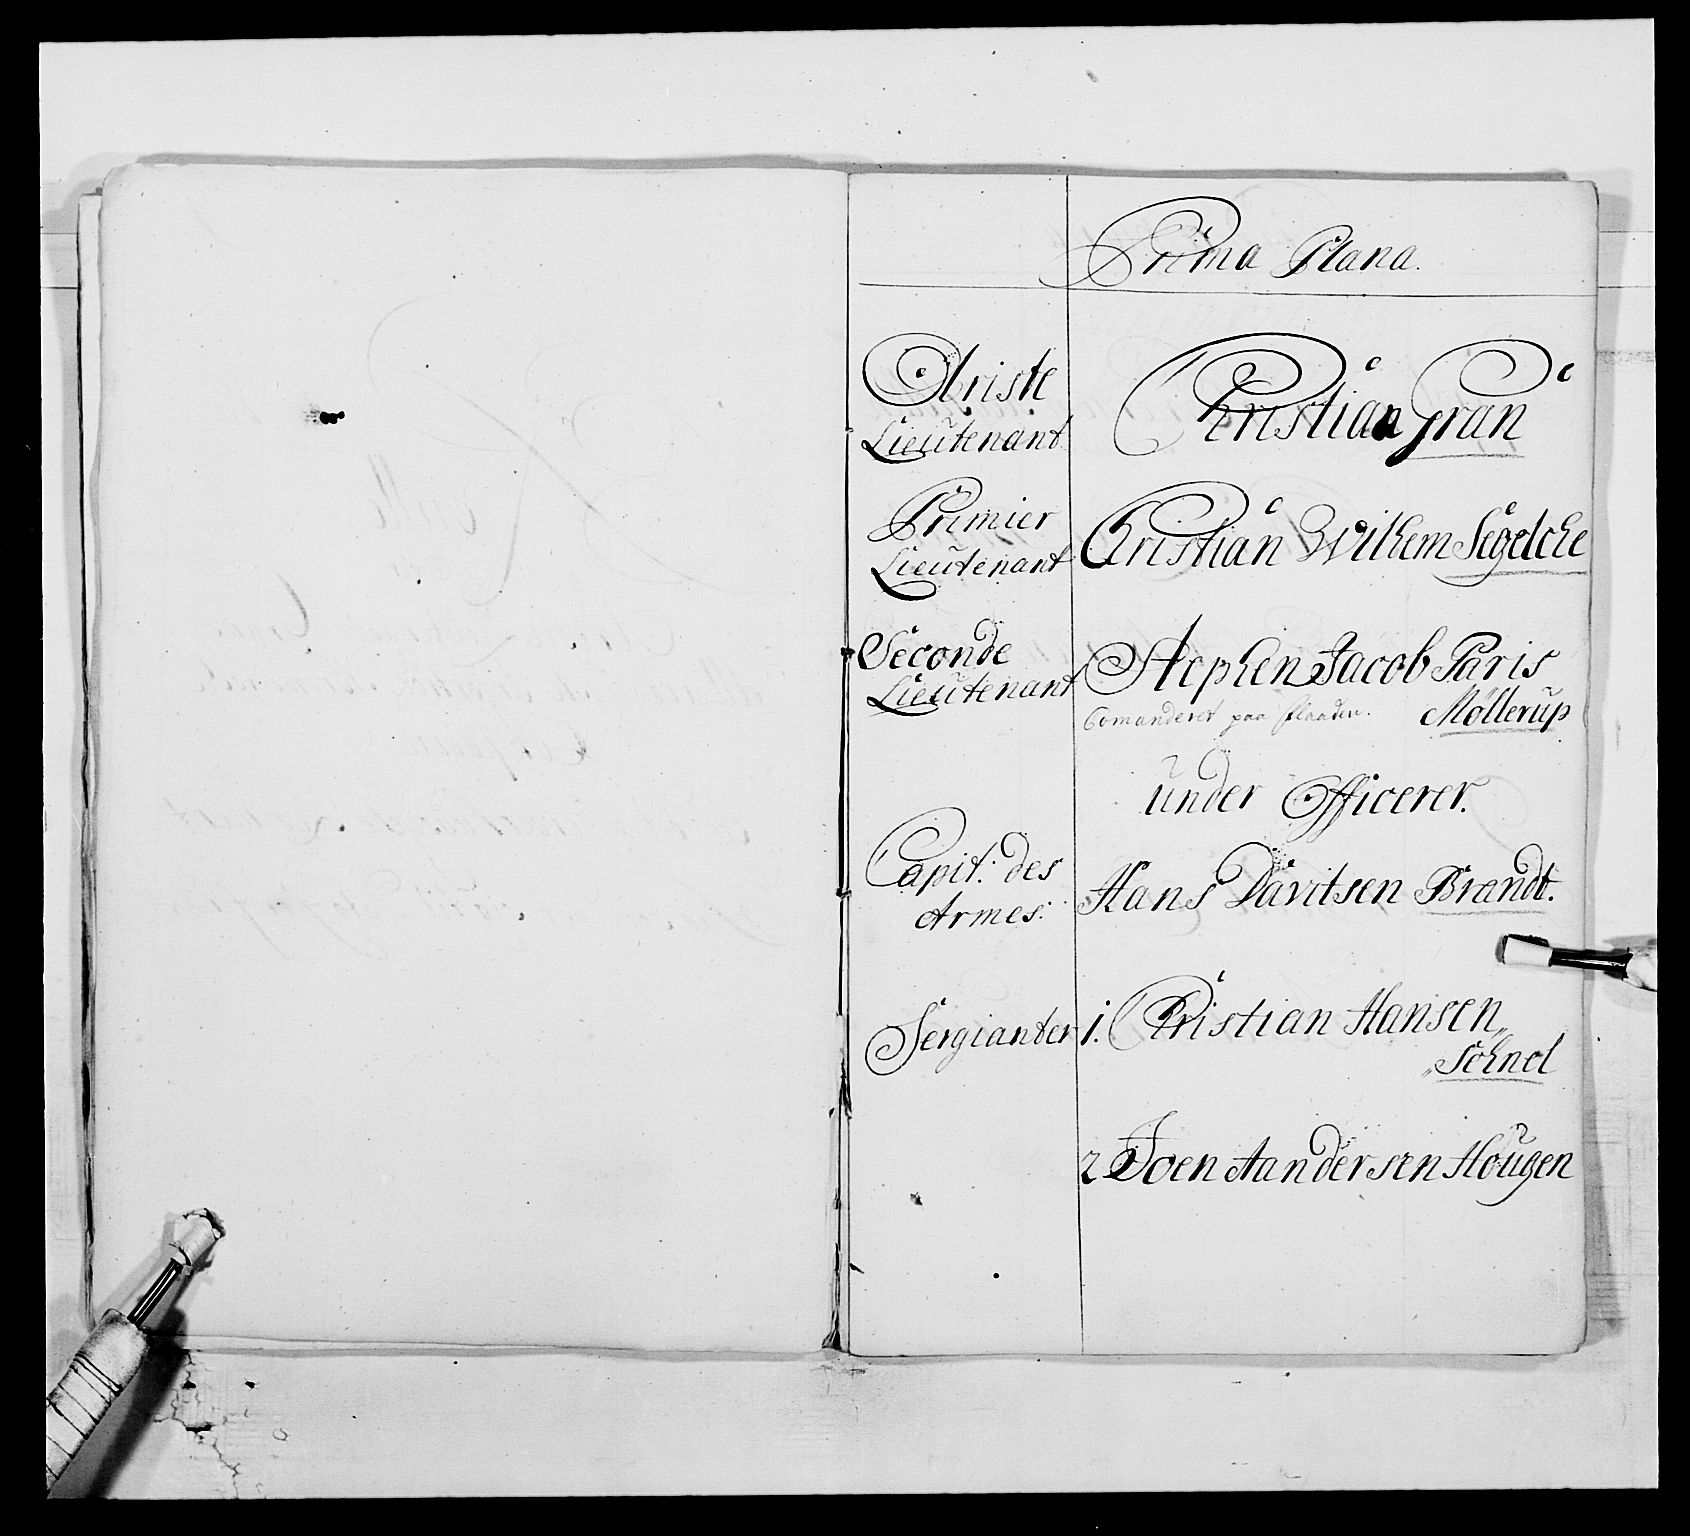 Prima Plana.
Obriste
Lieutenant
Christian Gran
Primier
Lieutenant
Christian Wilhem Segelche
Seconde
Lieutenant
Stephen Jacob Paris
Comanderet paa flaaden. Møllerup
under Officerer.
Capit: des
Armes:
Hans Davitsen Brandt.
Sergianter
1. Christian Hansen
Sohnel
2 Joen Aandersen Hougen